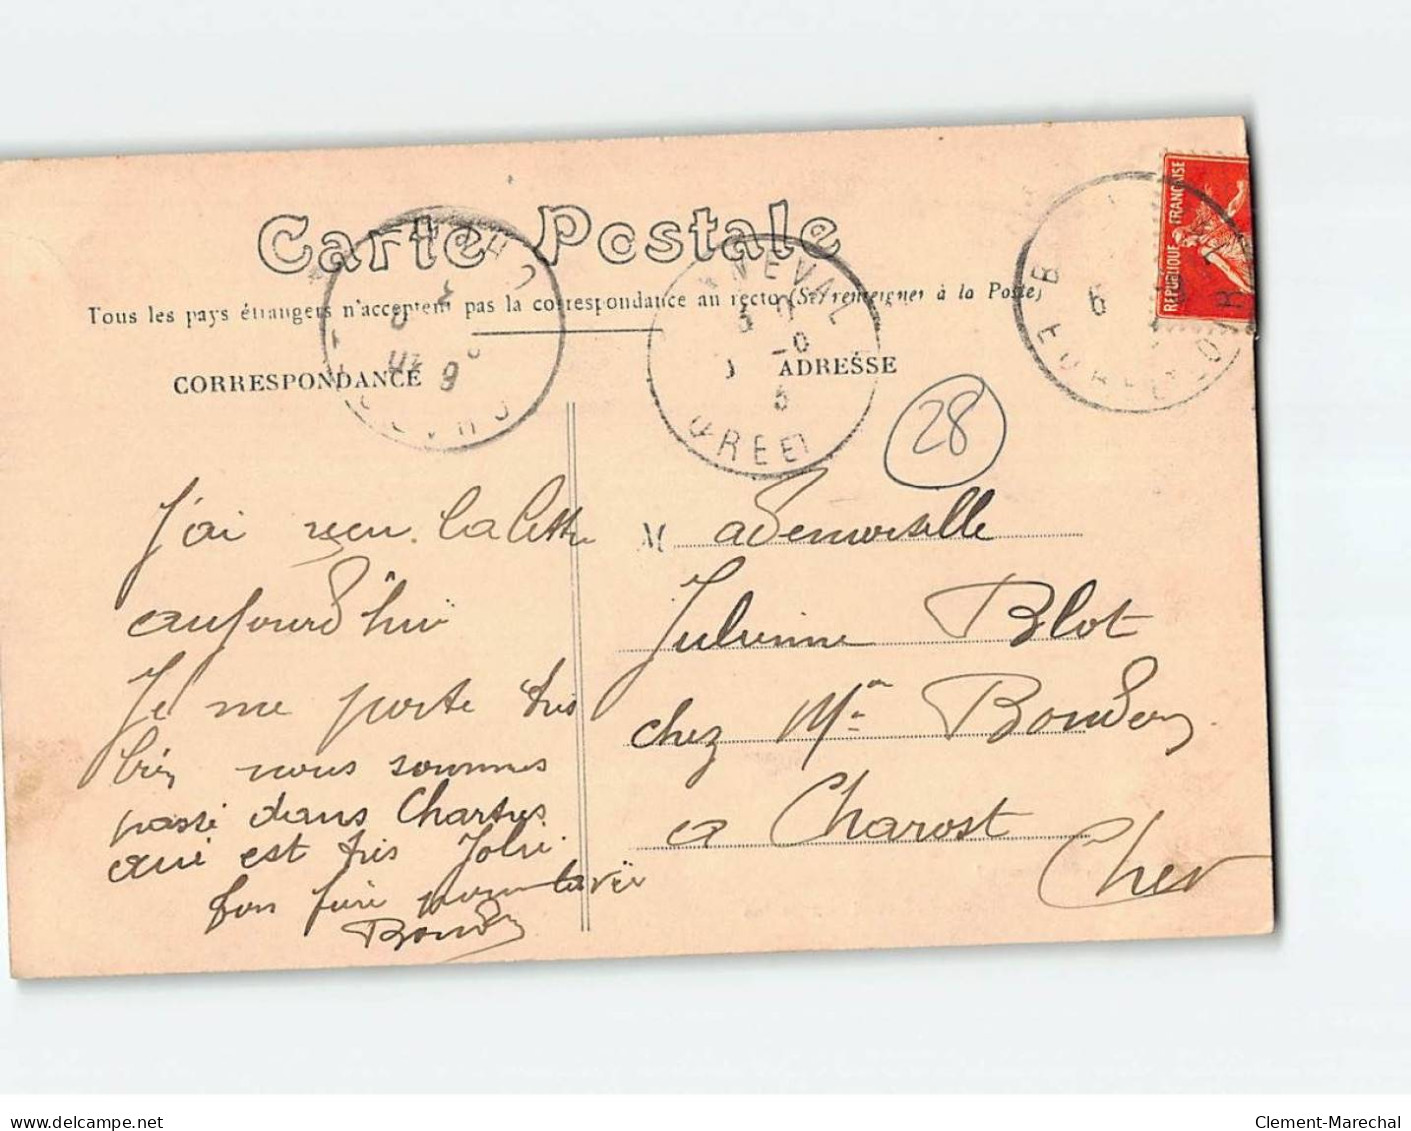 Carte Postale
Tous les pays étrangers n'acceptent pas la correspondance au recto (Se renseigner à la Poste)
CORRESPONDANCE
ADRESSE
28
REPUBLIQUE FRANÇAISE
J'ai reçu la lettre
aujourd'hui
Je me porte très
bien nous sommes
passé dans Chartres
qui est très Joli
M ademoiselle
Julienne Blot
chez Mme Boudon
a Charost
Cher
delcampe.net
Clement-Marechal